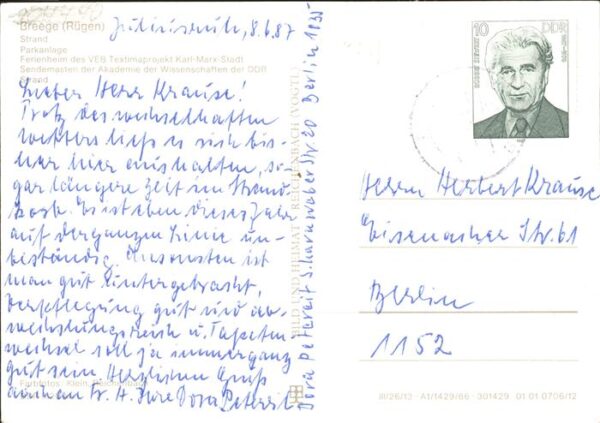 Breege (Rügen)
Strand
Parkanlage
Ferienheim des VEB Textimaprojekt Karl-Marx-Stadt
Sendemasten der Akademie der Wissenschaften der DDR
Strand
Juliusruh, 8.6.87
Lieber Herr Krause!
Trotz des wechselhaften
Wetters ließ es sich bis-
her hier aushalten, so-
gar längere Zeit im Strand
korb. Es ist eben dieses Jahr
auf der ganzen Linie un-
beständig. Ansonsten ist
man gut untergebracht,
Verpflegung gut und ab-
wechslungsreich u. Tapeten
wechsel soll ja immer ganz
gut sein. Herzlichen Gruß
auch an Fr. H. Ihre Dora Petereit
Farbfotos: Klein, Reichenbach
BILD UND HEIMAT REICHENBACH (VOGTL)
Dora Petereit Scharnweberstr. 20 Berlin 1035
10
DDR
Herrn Herbert Krause
Eisenacher Str. 61
Berlin
1152
III/26/13 A1/1429/86 301429 01 01 0706/12